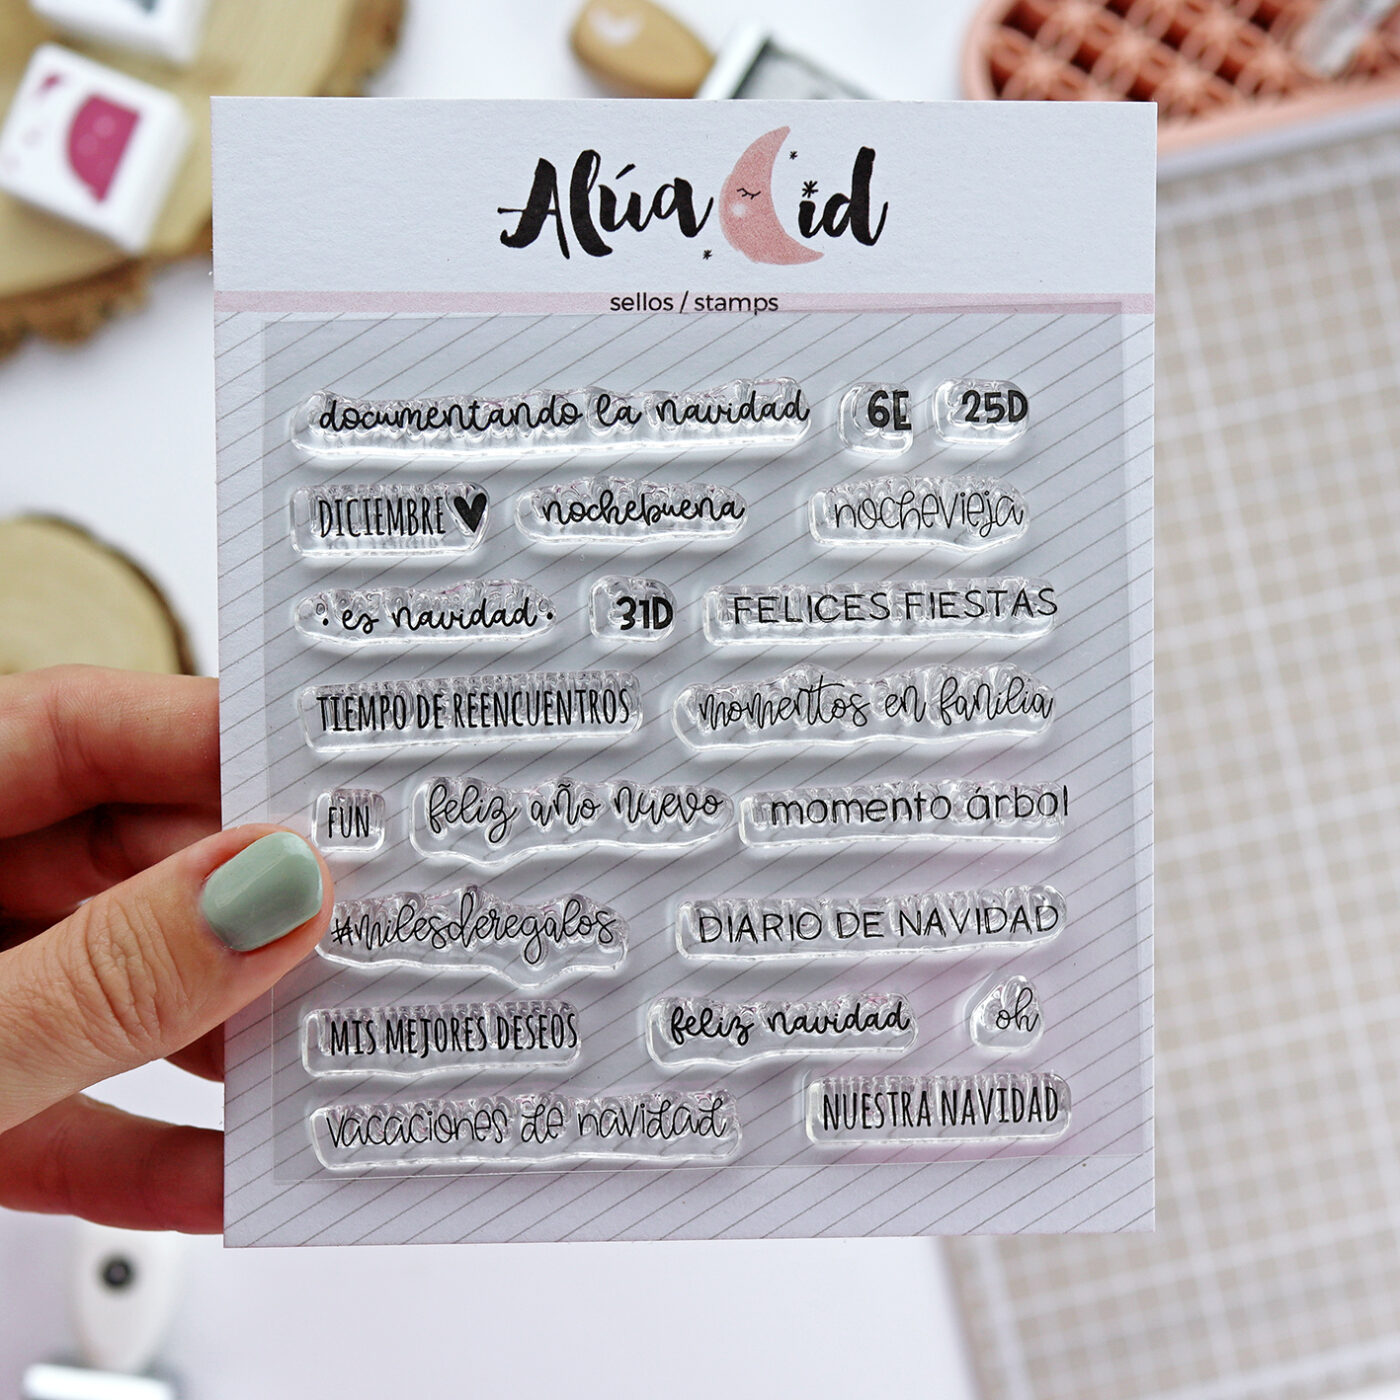 Alúa Cid
sellos / stamps
documentando la navidad 6E 25D
DICIEMBRE nochebuena nochevieja
es navidad 31D FELICES FIESTAS
TIEMPO DE REENCUENTROS momentos en familia
FUN feliz año nuevo momento árbol
#milesderegalos DIARIO DE NAVIDAD
MIS MEJORES DESEOS feliz navidad oh
vacaciones de navidad NUESTRA NAVIDAD